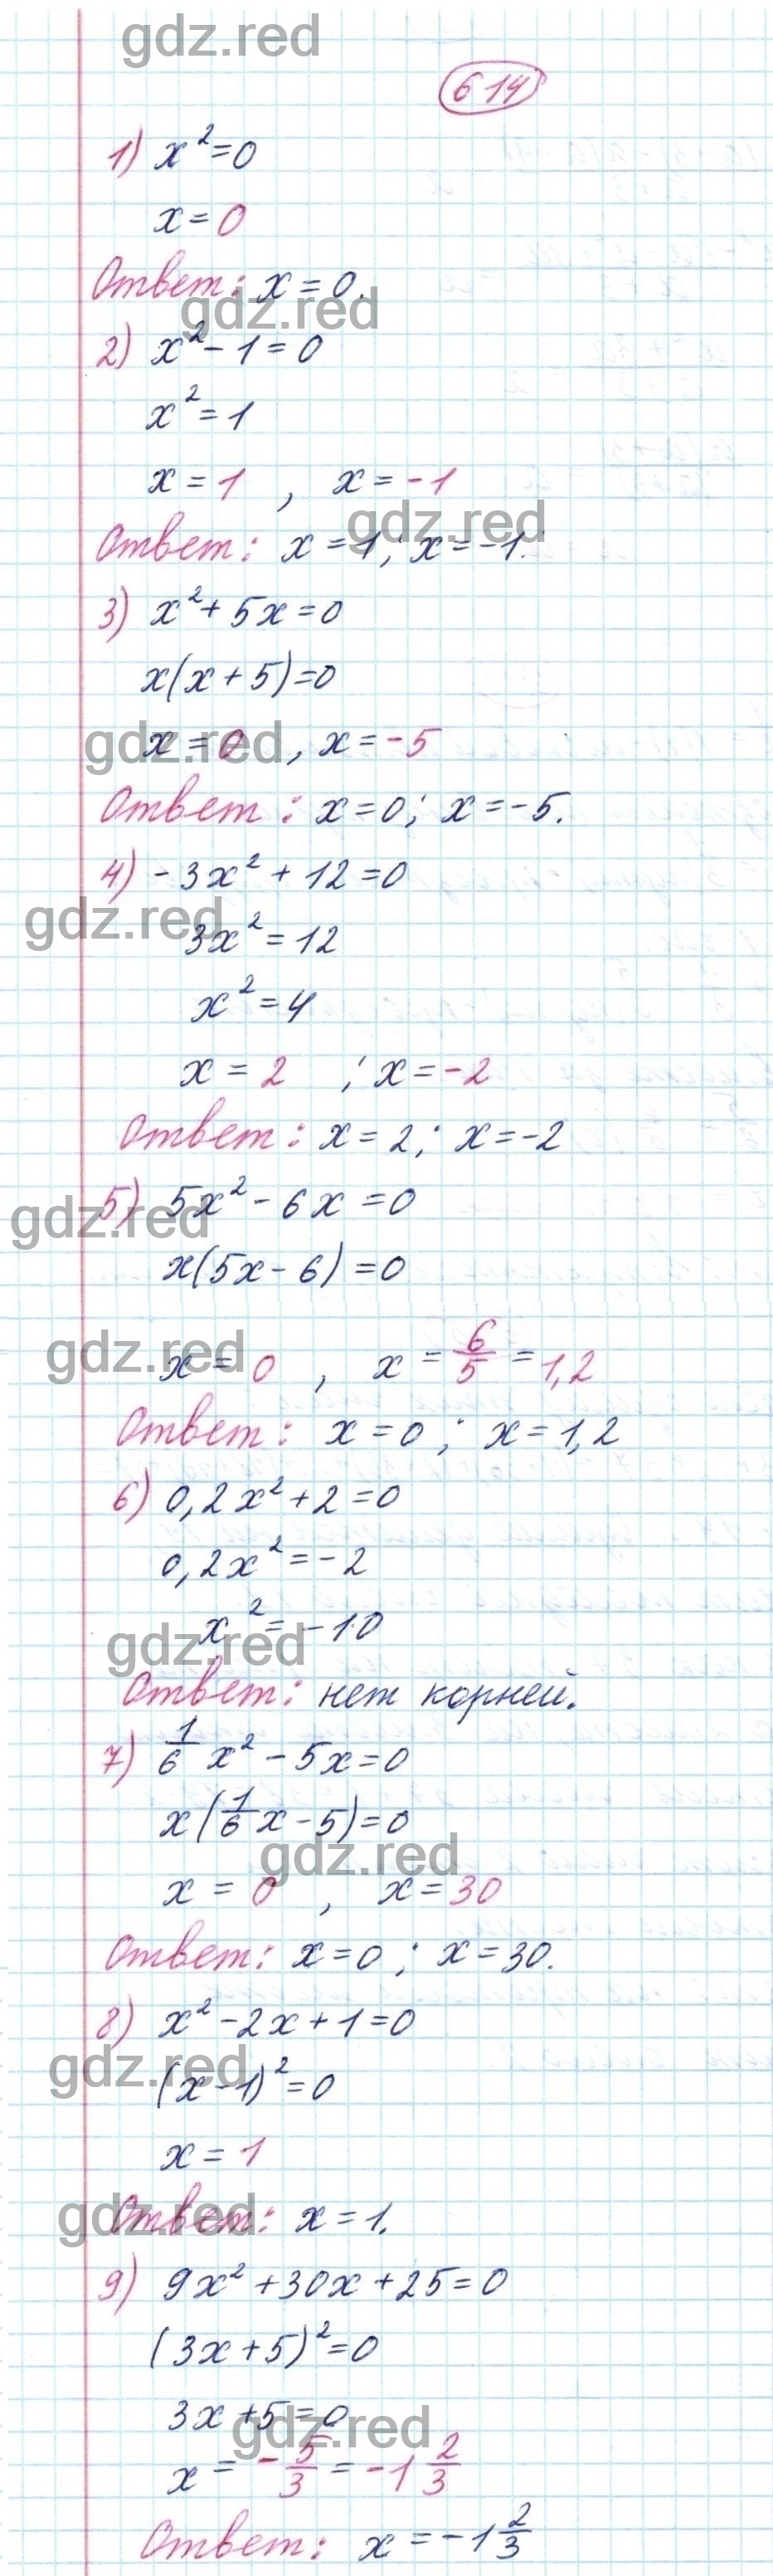 gdz.red
614
1) x²=0
x=0
Ответ: x=0.
gdz.red
2) x²-1=0
x²=1
x=1, x=-1
gdz.red
Ответ: x=1; x=-1.
3) x²+5x=0
x(x+5)=0
gdz.red
x=0, x=-5
Ответ: x=0; x=-5.
4) -3x²+12=0
gdz.red
3x²=12
x²=4
x=2; x=-2
Ответ: x=2; x=-2
5) 5x²-6x=0
gdz.red
x(5x-6)=0
gdz.red
x=0, x=6/5=1,2
Ответ: x=0; x=1,2
6) 0,2x²+2=0
0,2x²=-2
x²=-10
gdz.red
Ответ: нет корней.
7) 1/6 x²-5x=0
x(1/6 x-5)=0
gdz.red
x=0, x=30
Ответ: x=0; x=30.
8) x²-2x+1=0
gdz.red
(x-1)²=0
x=1
gdz.red
Ответ: x=1.
9) 9x²+30x+25=0
(3x+5)²=0
3x+5=0
gdz.red
x=-5/3=-1 2/3
Ответ: x=-1 2/3